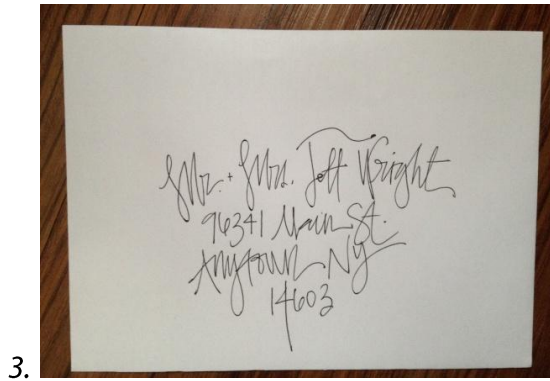 Mr. + Mrs. Jeff Wright
96341 Main St.
Anytown NY
14603
3.